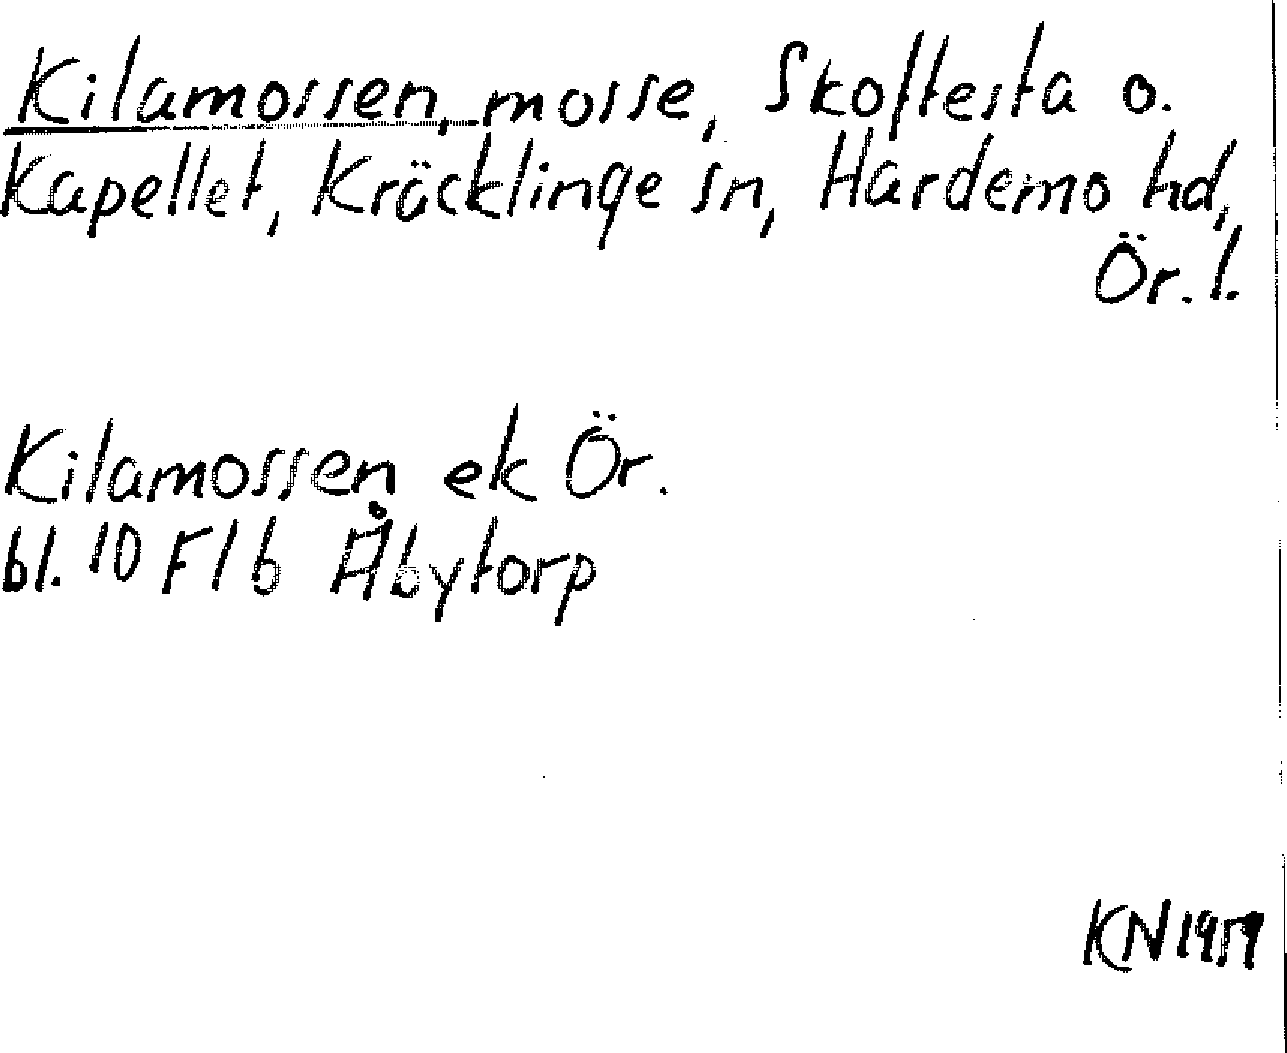 Kilamossen, mosse, Skoftesta o.
Kapellet, Kräcklinge sn, Hardemo hd,
Ör. l.
Kilamossen ek Ör.
bl. 10 F 1 b Åbytorp
KN 1959